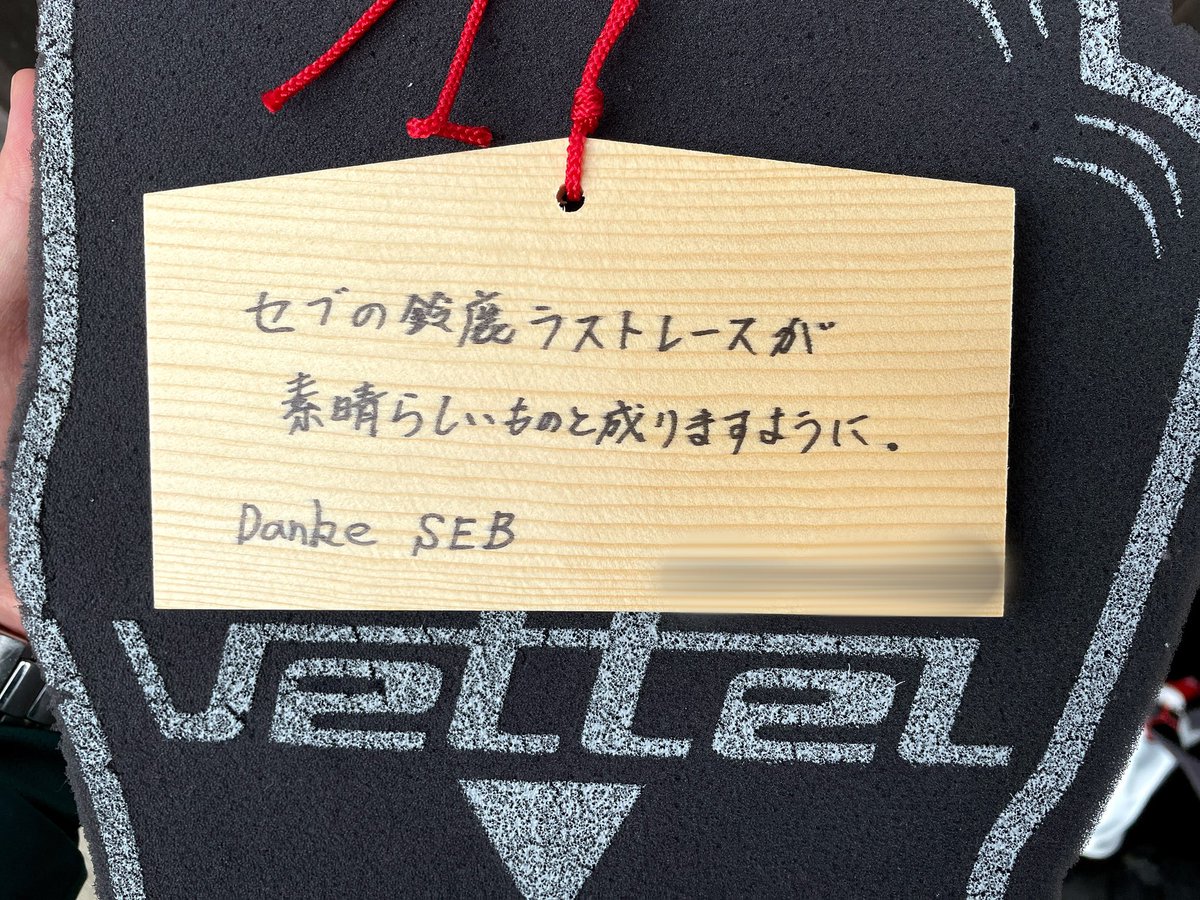 セブの鈴鹿ラストレースが
素晴らしいものと成りますように。
Danke SEB
vettel